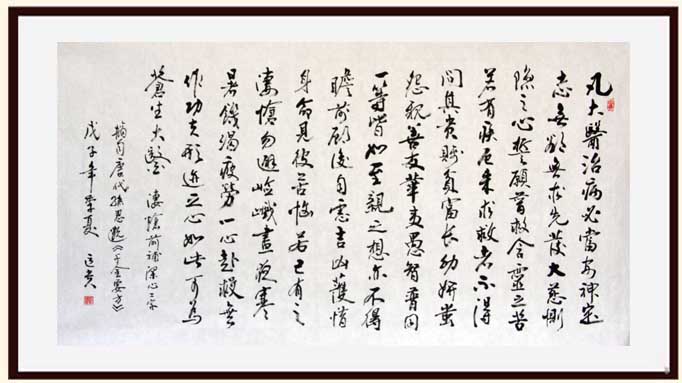 凡大醫治病必當安神定
志無欲無求先發大慈惻
隱之心誓願普救含靈之苦
若有疾厄來求救者不得
問其貴賤貧富長幼妍蚩
怨親善友華夷愚智普同
一等皆如至親之想亦不得
瞻前顧後自慮吉凶護惜
身命見彼苦惱若己有之
淒愴勿避嶮巇晝夜寒
暑饑渴疲勞一心赴救無
作功夫形迹之心如此可為
蒼生大醫 淒愴前補深心二字
摘自唐代孫思邈《千金要方》
戊子年榮夏